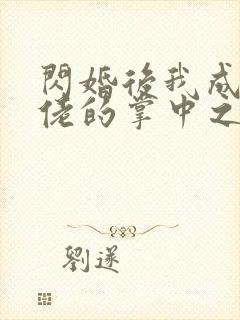 閃婚後我成
佬的掌中之
劉遂